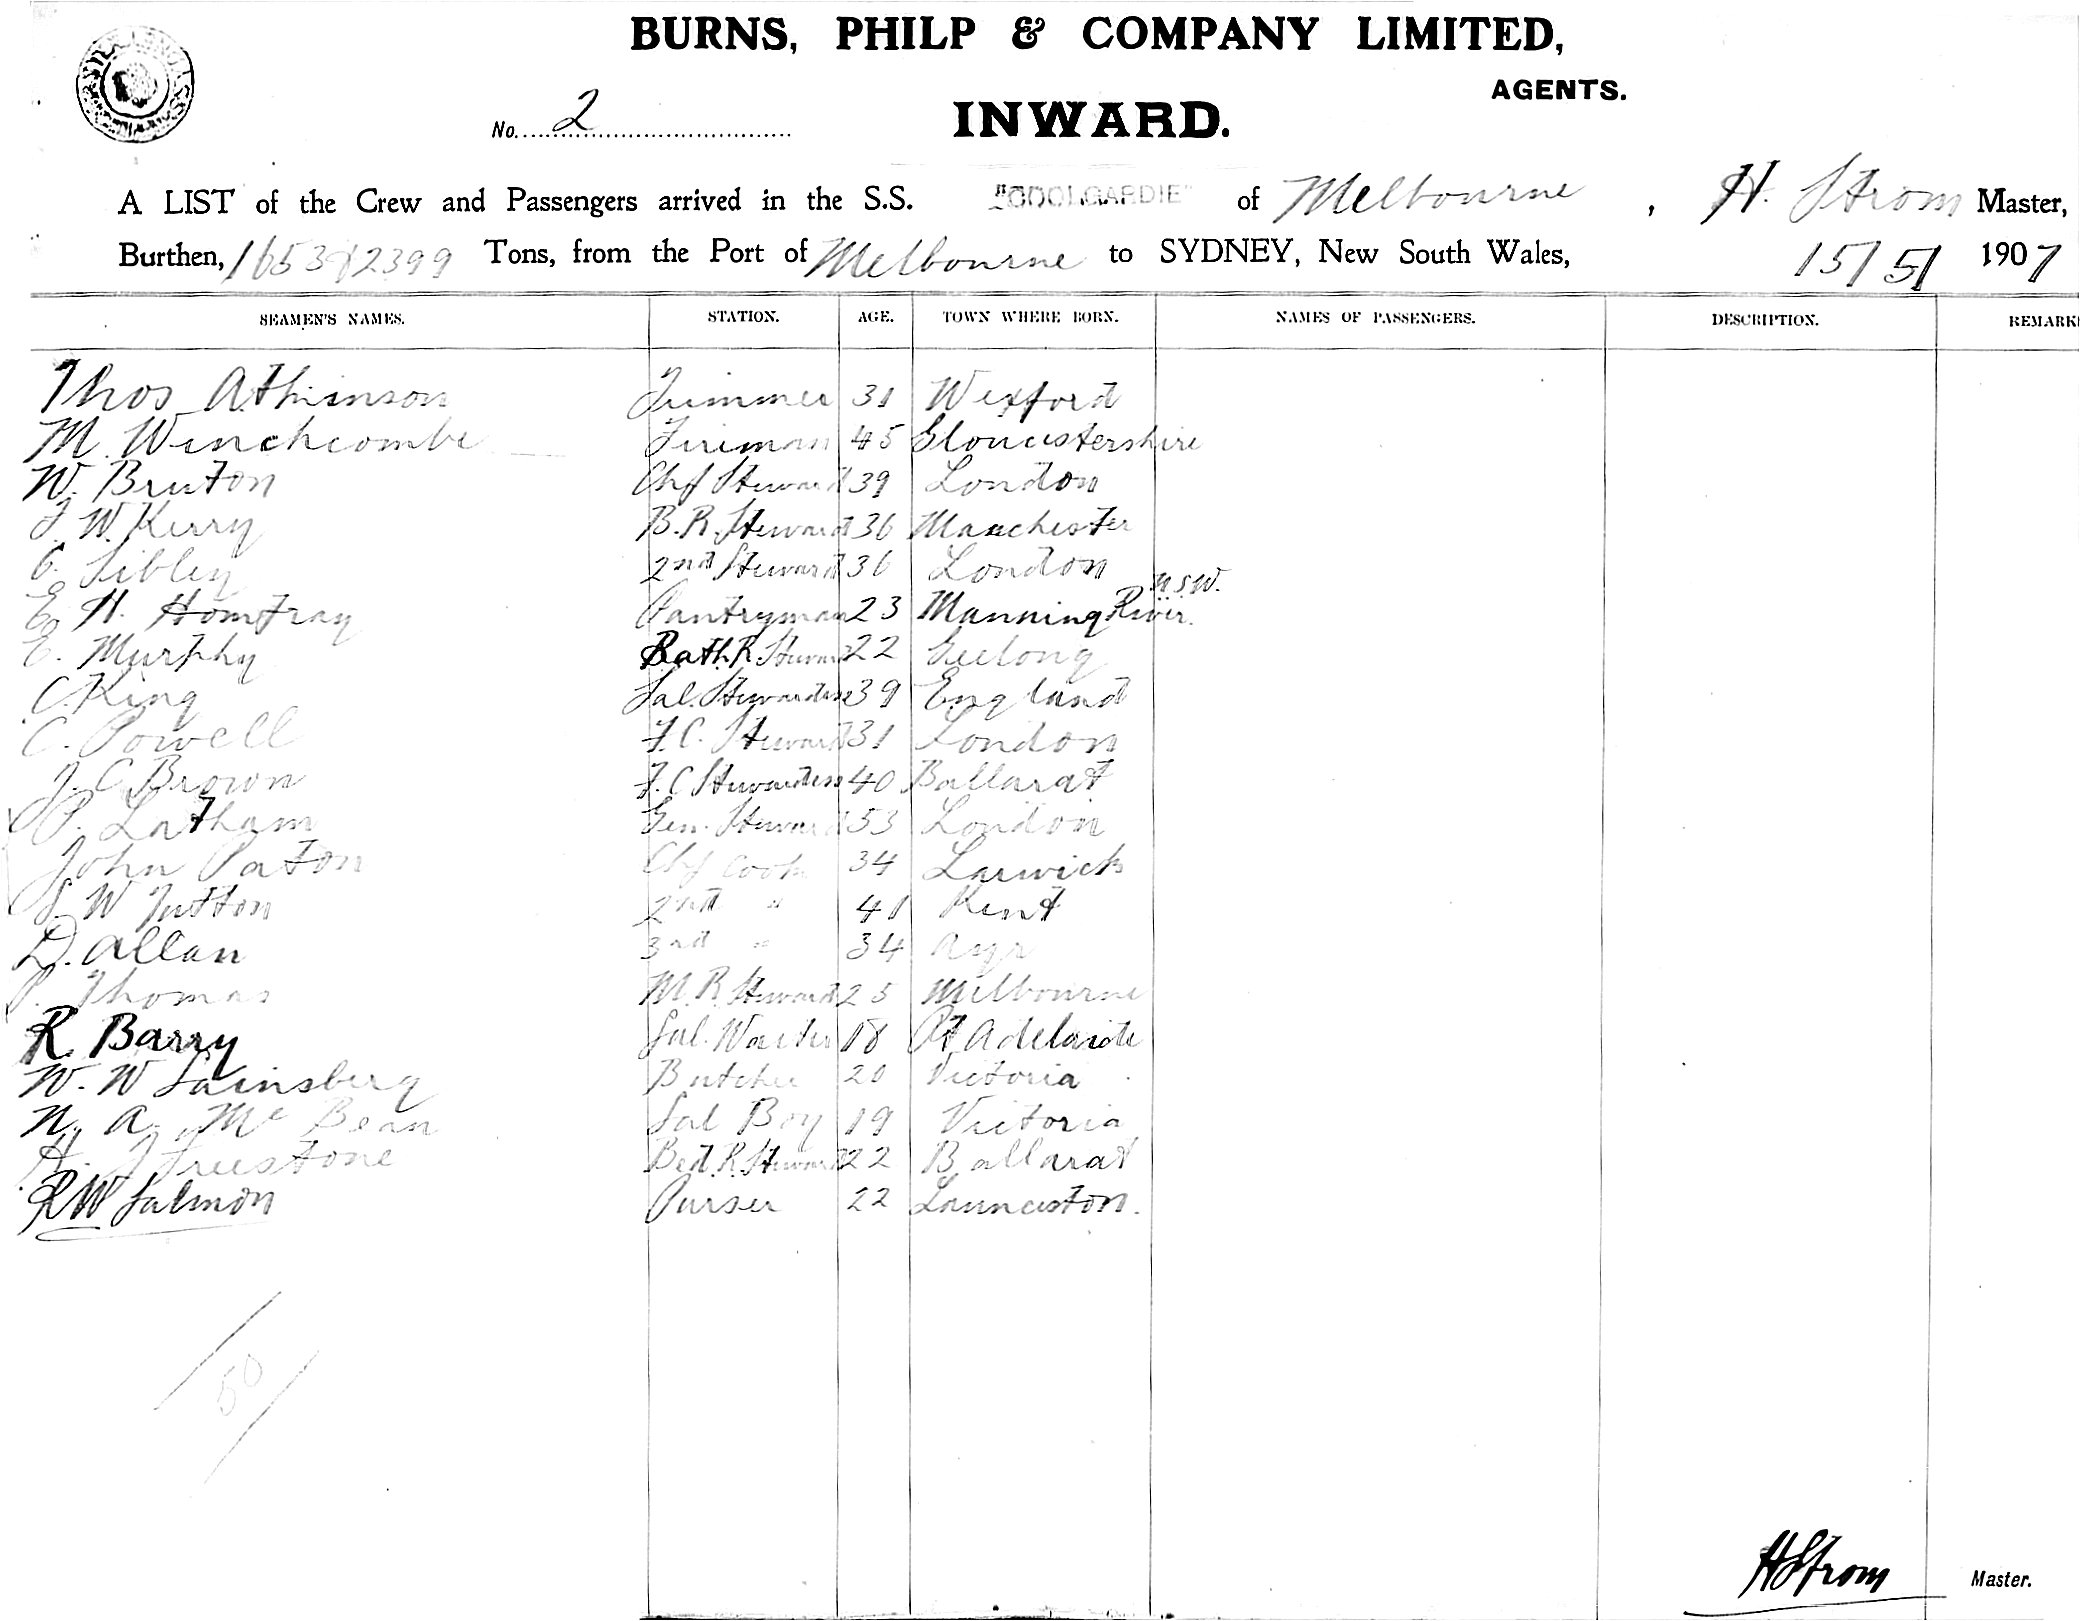 BURNS, PHILP & COMPANY LIMITED,
AGENTS.
No. 2
INWARD.
A LIST of the Crew and Passengers arrived in the S.S. "COOLGARDIE" of Melbourne, H. Strom Master,
Burthen, 1653 & 2399 Tons, from the Port of Melbourne to SYDNEY, New South Wales, 15/5/ 1907
SEAMEN'S NAMES. STATION. AGE. TOWN WHERE BORN. NAMES OF PASSENGERS. DESCRIPTION. REMARK
Thos Atkinson Trimmer 31 Wexford
M. Winchcombe Fireman 45 Gloucestershire
W. Bruton Chf Steward 39 London
J. W. Kerry B.R. Steward 36 Manchester
C. Sibley 2nd Steward 36 London
E. H. Homfray Pantryman 23 Manning River N.S.W.
E. Murphy Bath.R. Steward 22 Geelong
C. King Sal. Stewardess 39 England
C. Powell F.C. Steward 31 London
J. C. Brown F.C Stewardess 40 Ballarat
P. Latham Gen. Steward 53 London
John Paton Chf Cook 34 Larwick
S. W Tutton 2nd " 41 Kent
D. Allan 3rd " 34 Ayr
P. Thomas M.R. Steward 25 Melbourne
R. Barry Sal. Waiter 18 Pt Adelaide
W. W Sainsberg Butcher 20 Victoria
N. A. Mc Bean Sal Boy 19 Victoria
H. J Freestone Bed.R. Steward 22 Ballarat
R W Salmon Purser 22 Launceston.
50
H Strom Master.